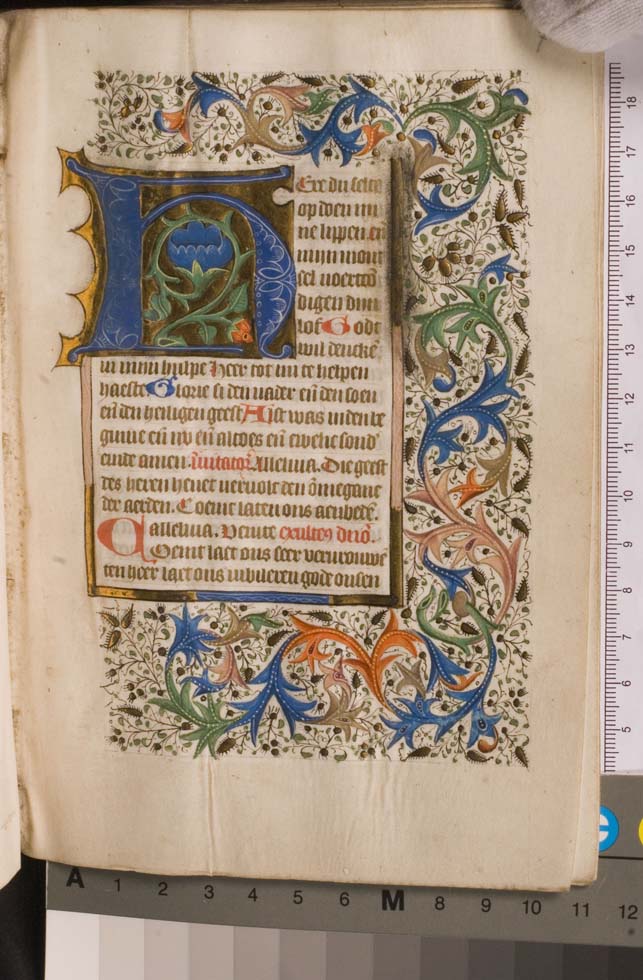 Ere du selt
op doen mi
ne lippen en
mijn mont
sel voertcō
digen dinē
lof God
wil dencke
in mijn hulpe Heer tot mi te helpen
haeste Glorie si den vader eñ den soen
eñ den heiligen geest Alst was inden be
ginne eñ nv eñ altoes eñ ewelic sond'
einde amen Alleluia. Die geest
des heren hevet vervolt den ōmeganc
der aerden. Coemt laten ons aenbedē.
alleluia. Venite
Coemt laet ons seer vervrouwē
ten heer laet ons iubileren gode onsen
A 1 2 3 4 5 6 M 8 9 10 11 12
18
17
16
15
14
13
12
11
10
9
8
7
6
5